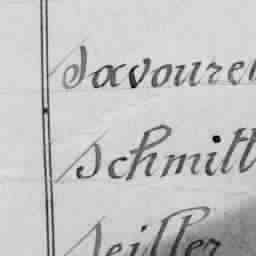 Savouret
Schmitt
Seiller